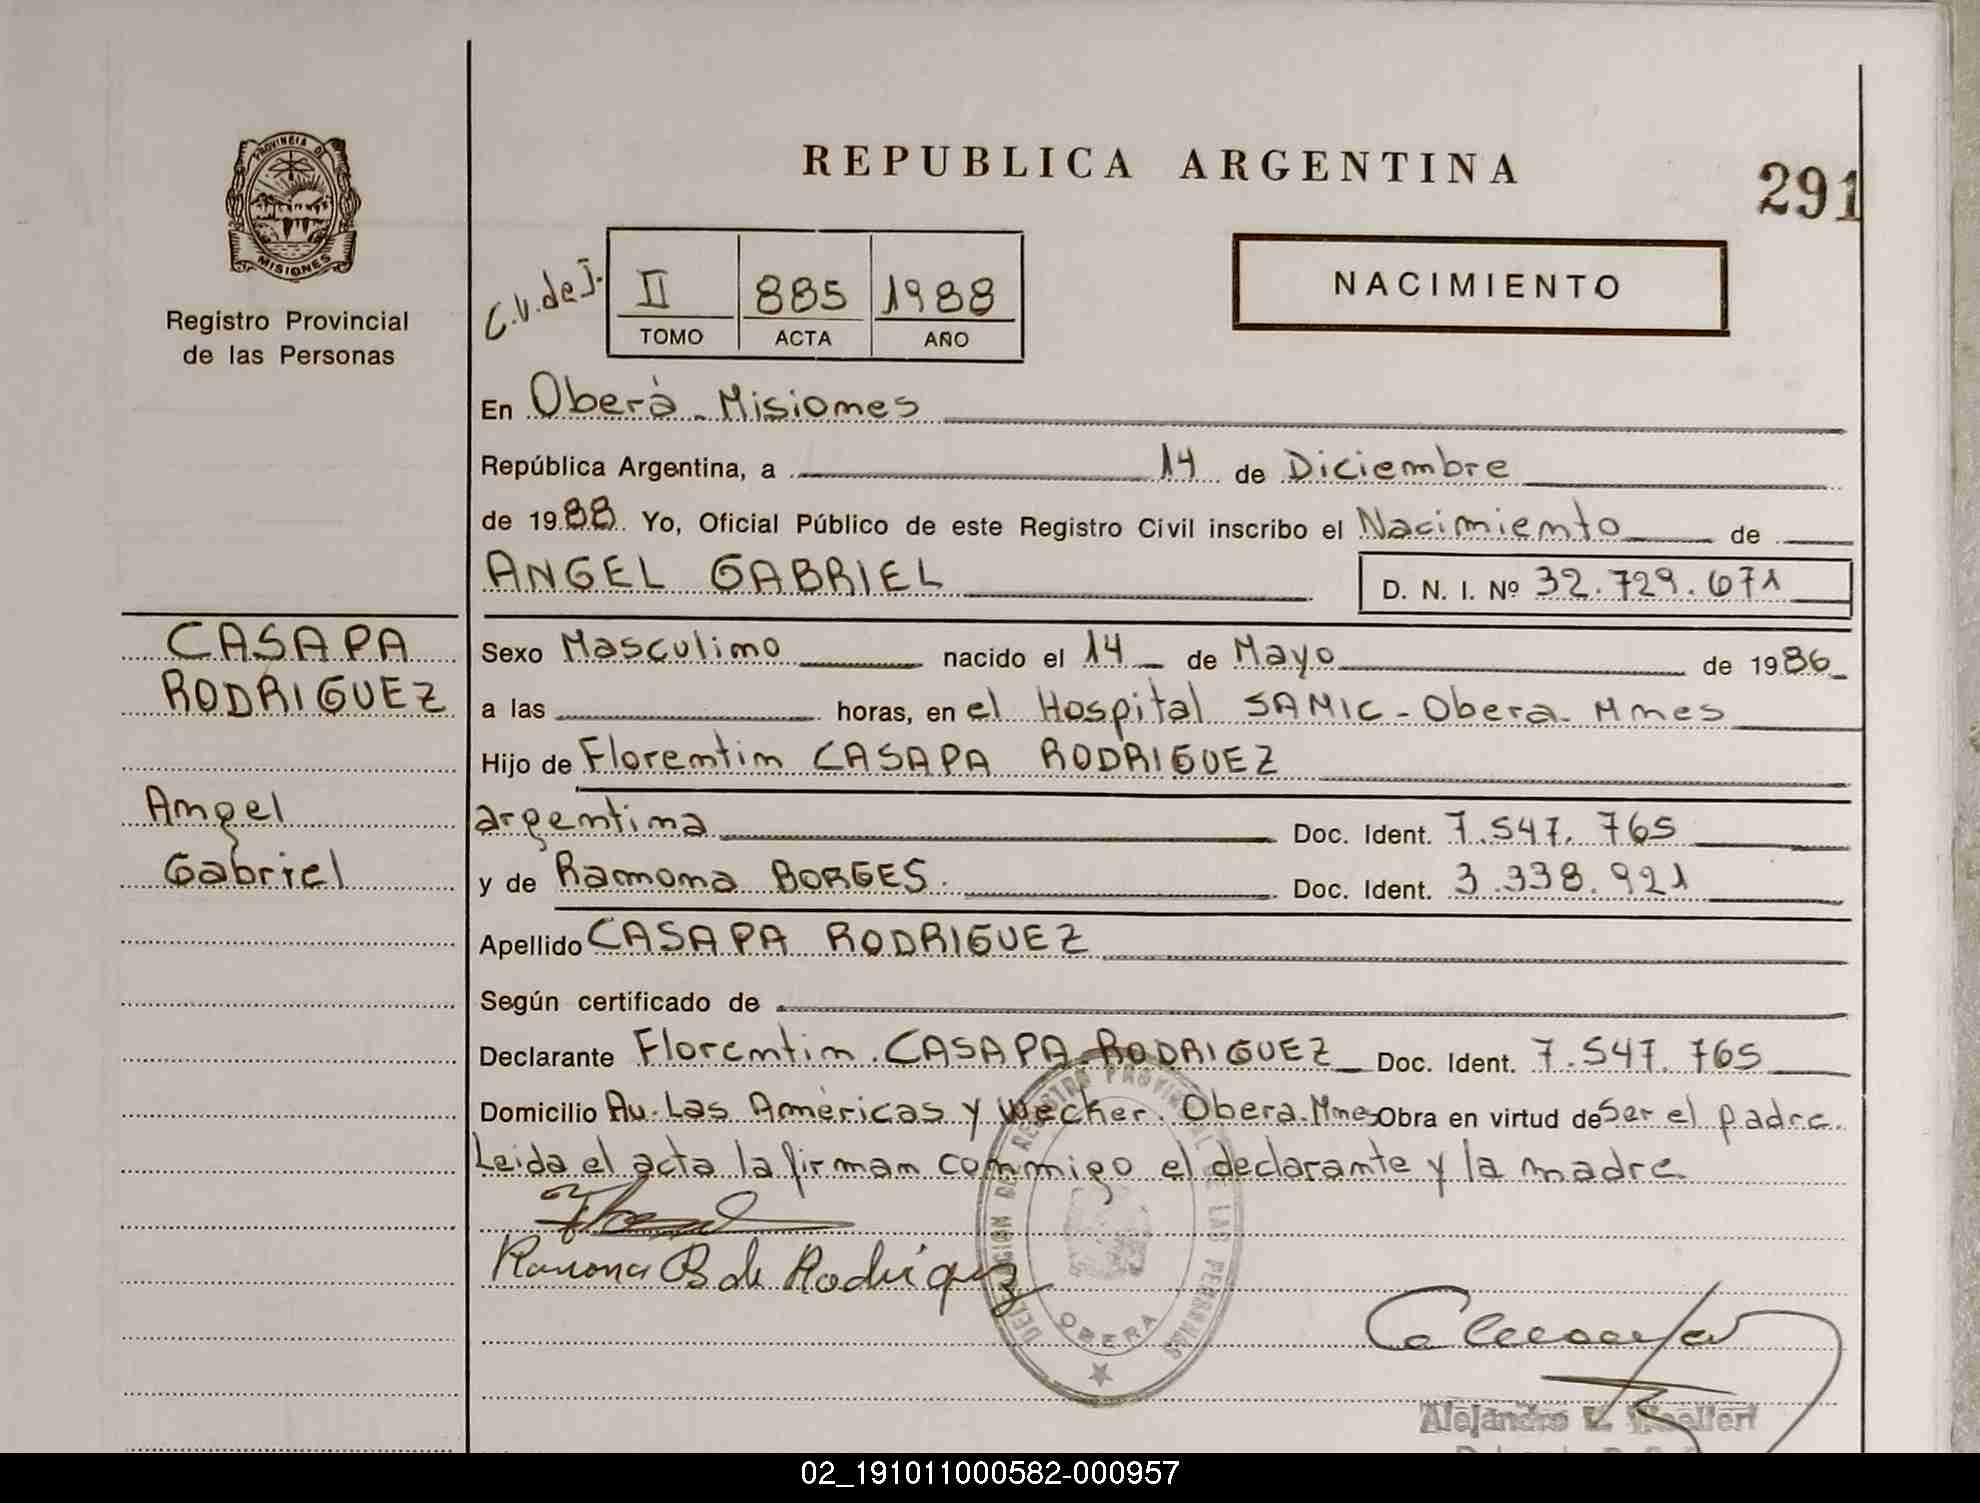 PROVINCIA DE
MISIONES
Registro Provincial
de las Personas
REPUBLICA ARGENTINA
291
C.V. de J.
II 885 1988
TOMO ACTA AÑO
NACIMIENTO
En Oberá - Misiones
República Argentina, a 14 de Diciembre
de 1988. Yo, Oficial Público de este Registro Civil inscribo el Nacimiento de
ANGEL GABRIEL D. N. I. Nº 32.729.671
CASAPA
RODRIGUEZ
Angel
Gabriel
Sexo Masculino nacido el 14 de Mayo de 1986
a las horas, en el Hospital SAMIC - Obera - Mnes
Hijo de Florentin CASAPA RODRIGUEZ
argentina Doc. Ident. 7.547.765
y de Ramona BORGES. Doc. Ident. 3.338.921
Apellido CASAPA RODRIGUEZ
Según certificado de
Declarante Florentin CASAPA RODRIGUEZ Doc. Ident. 7.547.765
Domicilio Av. Las Américas y Wecker. Obera. Mnes Obra en virtud de Ser el padre.
Leida el acta la firman conmigo el declarante y la madre
Ramona B de Rodriguez
DELEGACION DEL REGISTRO PROVINCIAL DE LAS PERSONAS
OBERA
Alejandro
02_191011000582-000957